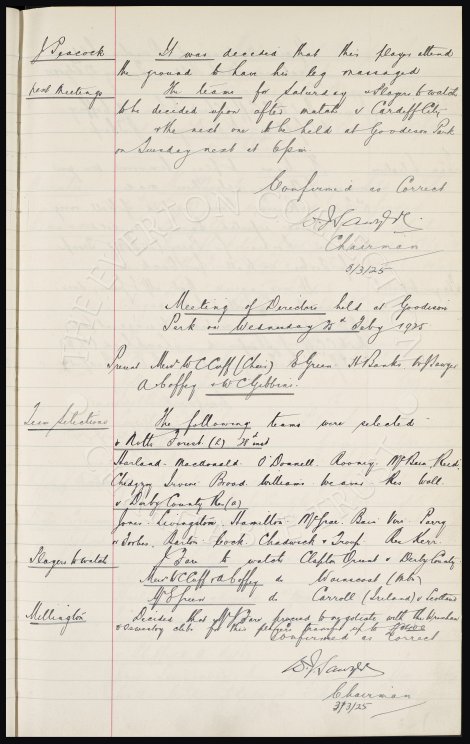 J Peacock
It was decided that this player attend
the ground to have his leg massaged
next Meetings
The teams for Saturday & Players to watch
to be decided upon after match v Cardiff City
& the next one to be held at Goodison Park
on Sunday next at 6pm.
Confirmed as Correct
Chairman
3/3/25
Meeting of Directors held at Goodison
Park on Wednesday Feby 1925
Present Messrs W C Cuff (Chair) E Green H Banks W J Sawyer
A Coffey & W C Gibbins.
Team Selections
The following teams were selected
v Notts Forest (L) 28th inst
Harland. Macdonald. O'Donnell. Rooney. McBain. Reid.
Chedgzoy Irvine Broad. Williams Weaver. Res Wall.
v Derby County Res (a)
Jones. Livingston. Hamilton. McGrae. Bain Virr. Parry
Forbes. Barton. Cock. Chadwick & Troup. Res Kerr.
Players to watch
J Fare to watch Clapton Orient v Derby County.
Messrs W C Cuff & A Coffey do
Mr E Green do Carroll (Ireland) v Scotland
Millington
Decided that Mr J Fare proceed to negotiate with the Wrexham
& Coventry clubs for this player's transfer up to
Confirmed as Correct
Chairman
3/3/25
THE EVERTON COLLECTION